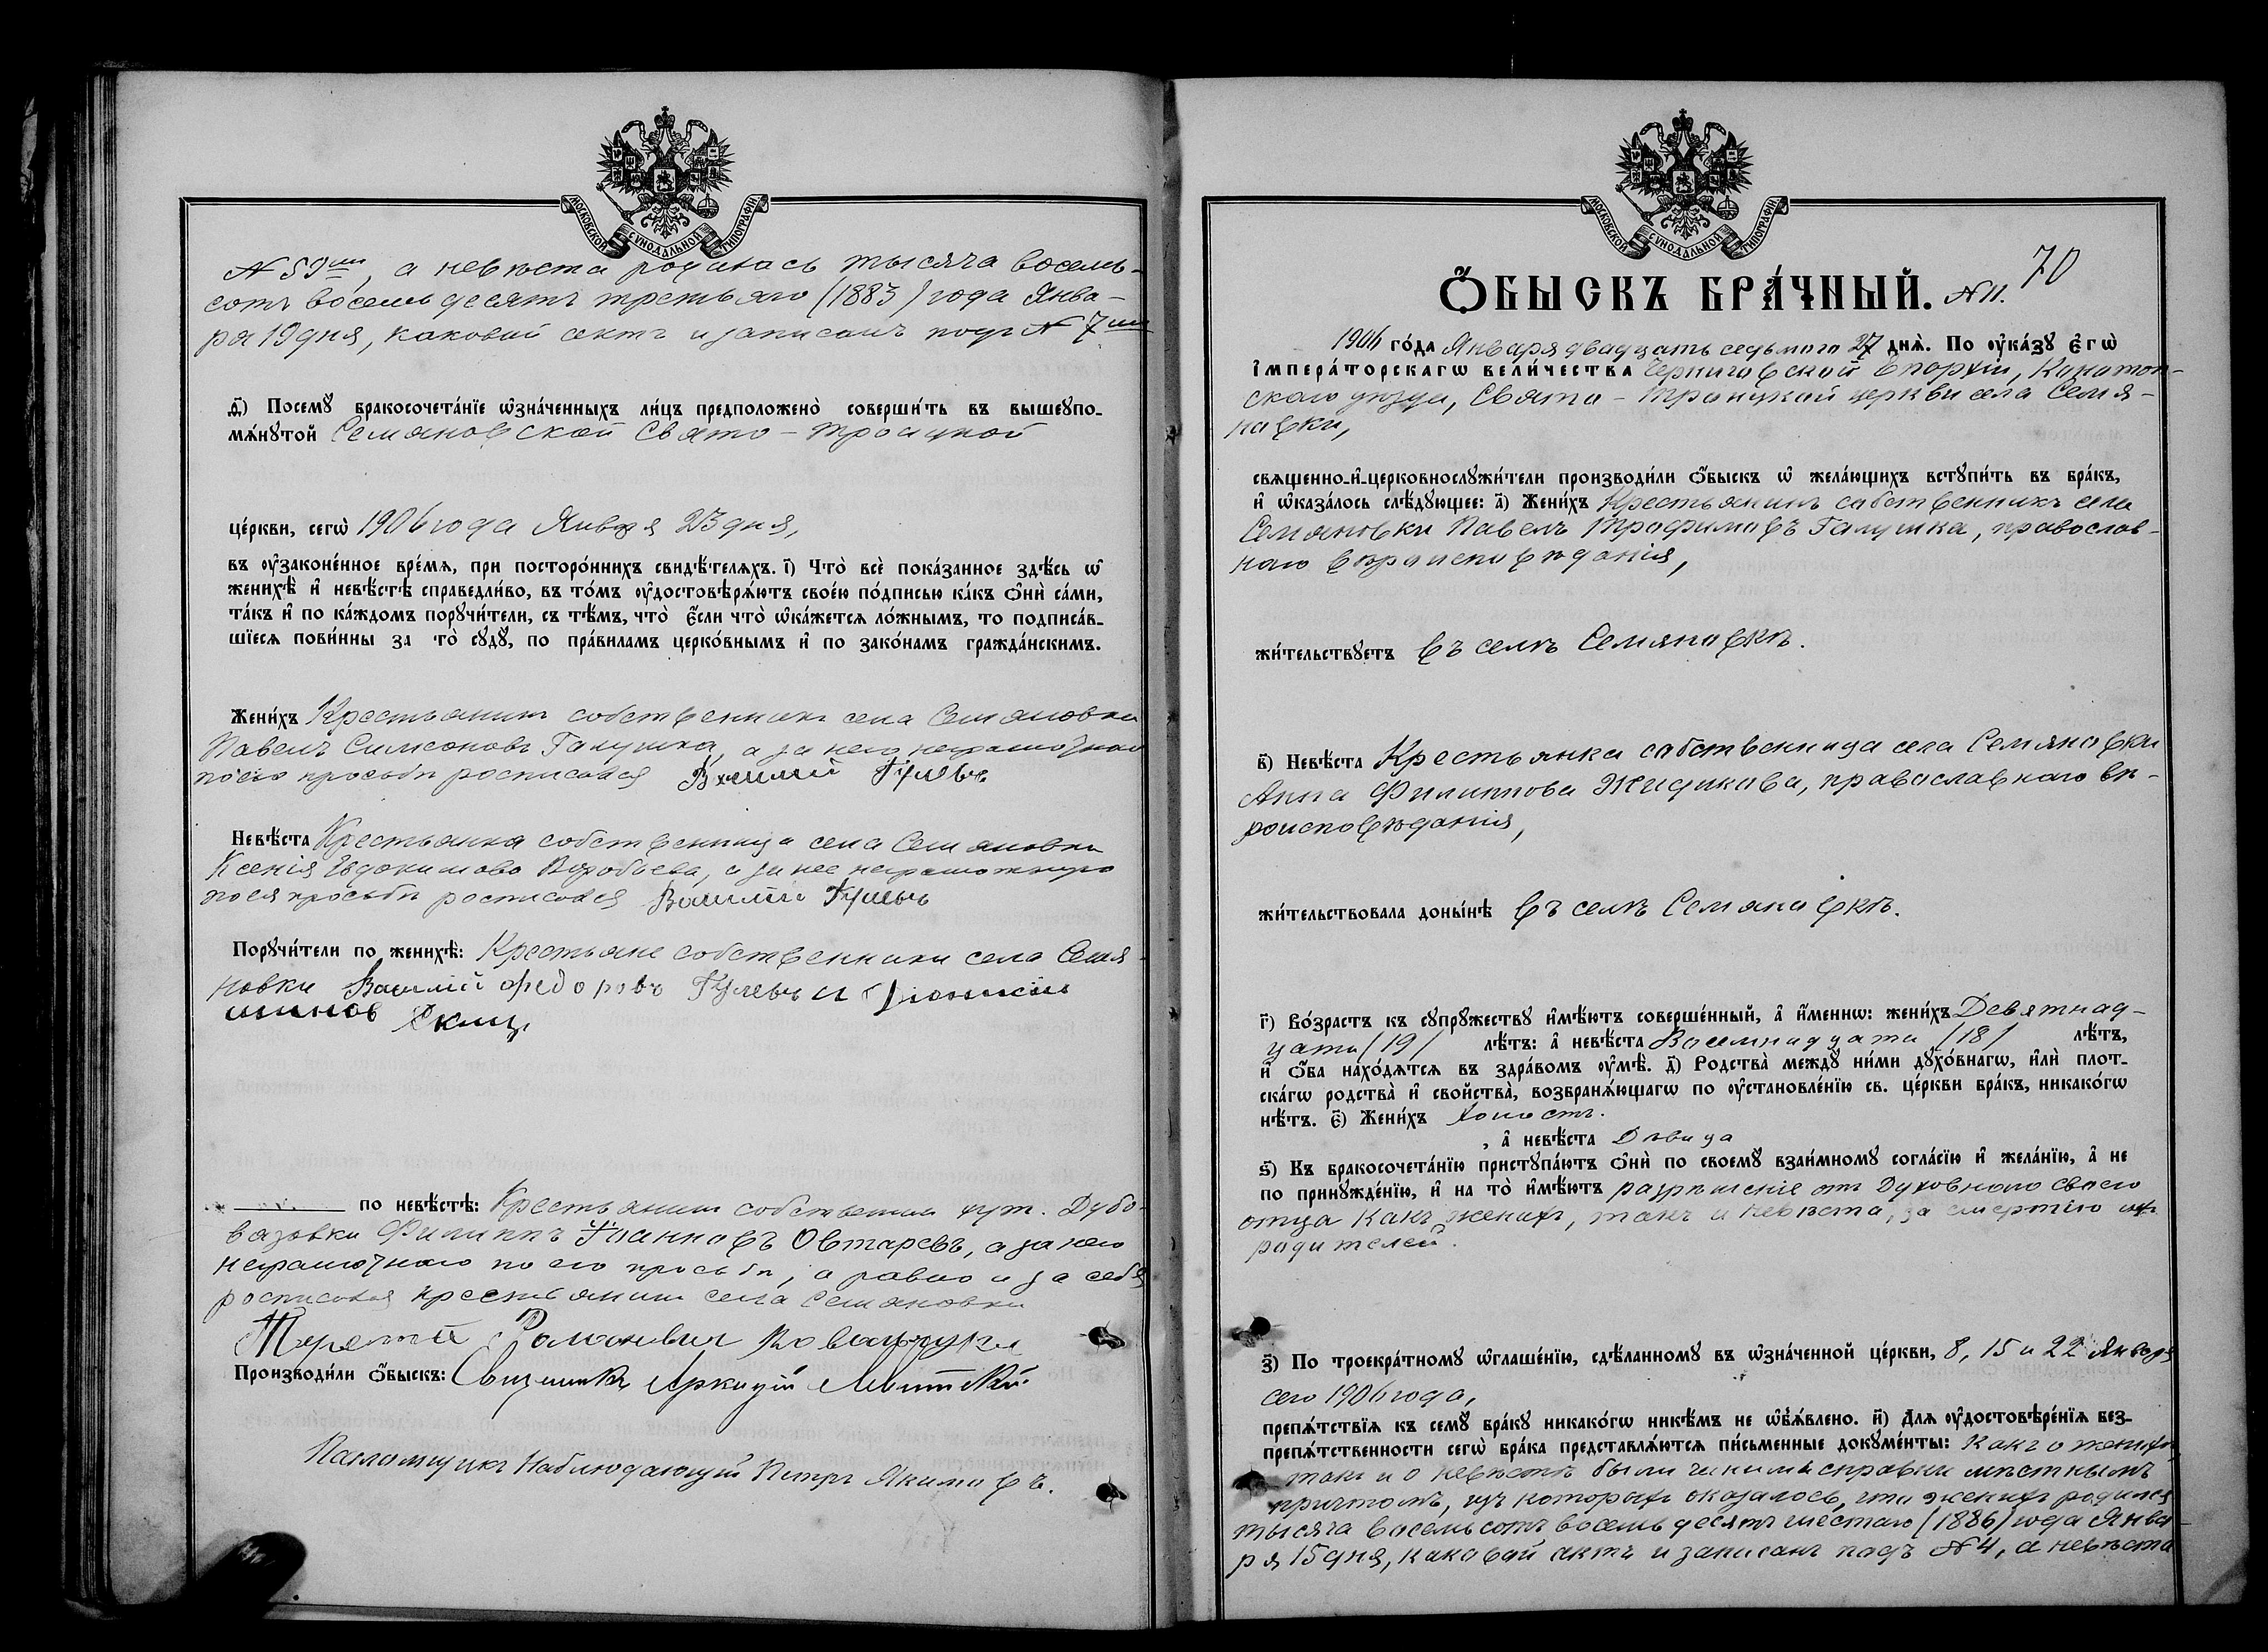 МОСКОВСКОЙ СѴНОДАЛЬНОЙ ТИПОГРАФІИ
№ 59мъ, а невѣста родилась тысяча восемь-
сотъ восемьдесятъ третьяго (1883) года Янва-
ря 19 дня, каковый актъ и записанъ подъ № 7мъ
д҃) Посемꙋ бракосочета́нїе ѡ҆зна́ченныхъ ли́цъ предположено̀ соверши́ть въ вышеꙋпо-
мѧ́нꙋтой Семяновской Свято-Троицкой
це́ркви, сегѡ̀ 1906 года Января 23 дня,
въ ᲂу҆законе́нное вре́мѧ, при посторо́ннихъ свидѣ́телѧхъ. і҃) Что̀ всѐ пока́занное здѣ́сь ѡ҆
женихѣ̀ и҆ невѣ́стѣ справедли́во, въ то́мъ ᲂу҆достовѣрѧ́ютъ свое́ю по́дписью ка́къ ѻ҆нѝ са́ми,
та́къ и҆ по ка́ждомъ порꙋчи́тели, съ тѣ́мъ, что̀ є҆́сли что̀ ѡ҆ка́жетсѧ ло́жнымъ, то подписа́в-
шїесѧ пови́нны за то̀ сꙋдꙋ̀, по пра́виламъ церко́внымъ и҆ по зако́намъ гражда́нскимъ.
Жени́хъ Крестьянинъ собственникъ села Семяновки
Павелъ Симеоновъ Галушка, а за него неграмотнаго
по его просьбѣ росписался Василій Гулевъ
Невѣ́ста Крестьянка собственница села Семяновки
Ксенія Евдокимова Воробьева, а за нее неграмотную
по ея просьбѣ росписался Василій Гулевъ
Порꙋчи́тели по женихѣ̀: Крестьяне собственники села Семя-
новки Василій Федоровъ Гулевъ и Діонисій
по невѣ́стѣ: Крестьянинъ собственникъ хут. Дубо-
вязовки Филиппъ Іоанновъ Овтаревъ, а за него
неграмотнаго по его просьбѣ, а равно и за себя
росписался крестьянинъ села Семяновки
Терентій Романовичъ
Производи́ли ѻ҆́быскъ: Священникъ Аркадій
Псаломщикъ Наблюдающій Петръ Якимовъ.
МОСКОВСКОЙ СѴНОДАЛЬНОЙ ТИПОГРАФІИ
70
Ѻ҆́БЫСКЪ БРА́ЧНЫЙ. № 11.
1906 го́да Января двадцать седьмого 27 днѧ̀. По ᲂу҆ка́зꙋ є҆гѡ̀
і҆мпера́торскагѡ вели́чества Черниговской Епархіи, Конотоп-
скаго уѣзда, Свято-Троицкой церкви села Семя-
новки,
свѧщенно-и҆-церковнослꙋжи́тели производи́ли ѻ҆́быскъ ѡ҆ жела́ющихъ встꙋпи́ть въ бра́къ,
и҆ ѡ҆каза́лось слѣ́дꙋющее: а҃) Жени́хъ Крестьянинъ собственникъ села
Семяновки Павелъ Трофимовъ Галушка, православ-
наго вѣроисповѣданія,
жи́тельствꙋетъ въ селѣ Семяновкѣ.
в҃) Невѣ́ста Крестьянка собственница села Семяновки
Анна Филиппова Жидикова, православнаго вѣ-
роисповѣданія,
жи́тельствовала доны́нѣ въ селѣ Семяновкѣ.
г҃) Во́зрастъ къ сꙋпрꙋ́жествꙋ и҆мѣ́ютъ соверше́нный, а҆ и҆́меннѡ: жени́хъ Девятнад-
цати (19) лѣ́тъ: а҆ невѣ́ста Восемнадцати (18) лѣ́тъ,
и҆ ѻ҆́ба нахо́дѧтсѧ въ здра́вомъ ᲂу҆мѣ̀. д҃) Родства̀ междꙋ̀ ни́ми дꙋхо́внагѡ, и҆лѝ плот-
ска́гѡ родства̀ и҆ свойства̀, возбранѧ́ющагѡ по ᲂу҆становле́нїю св. це́ркви бра́къ, никако́гѡ
нѣ́тъ. є҃) Жени́хъ Холостъ.
, а҆ невѣ́ста Дѣвица
ѕ҃) Къ бракосочета́нїю пристꙋпа́ютъ ѻ҆нѝ по своемꙋ̀ взаи́мномꙋ согла́сїю и҆ жела́нїю, а҆ не
по принꙋжде́нїю, и҆ на то̀ и҆мѣ́ютъ разрѣшеніе отъ Духовнаго своего
отца какъ женихъ, такъ и невѣста, за смертію ихъ
родителей.
з҃) По троекра́тномꙋ ѡ҆глаше́нїю, сдѣ́ланномꙋ въ ѡ҆зна́ченной це́ркви, 8, 15 и 22 Января
сего 1906 года,
препѧ́тствїѧ къ семꙋ̀ бра́кꙋ никако́гѡ никѣ́мъ не ѡ҆б̾ѧ́влено. и҃) Длѧ ᲂу҆достовѣре́нїѧ без-
препѧ́тственности сегѡ̀ бра́ка представлѧ́ютсѧ пи́сьменные докꙋме́нты: Какъ о женихѣ,
такъ и о невѣстѣ были чинимы справки мѣстнымъ
причтомъ, изъ которыхъ оказалось, что женихъ родился
тысяча восемьсотъ восемьдесятъ шестого (1886) года Янва-
ря 15 дня, каковой актъ и записанъ подъ № 4, а невѣста